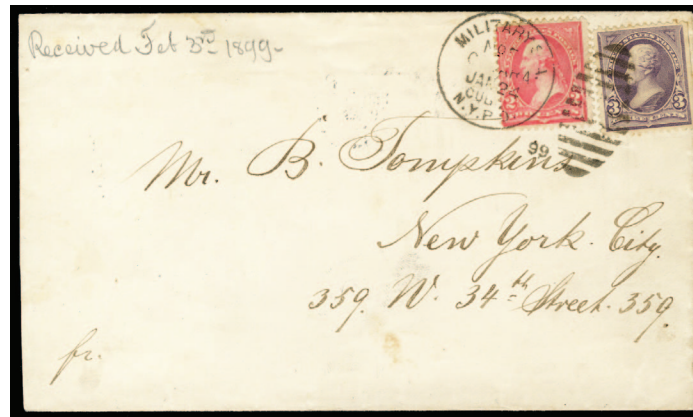 Received Feb 3rd 1899-
MILITARY
JAN 24
CUBA
N.Y.P.O.
99
2 2
3 3
Mr. B. Tompkins
New York. City.
359. W. 34th Street. 359.
fr.